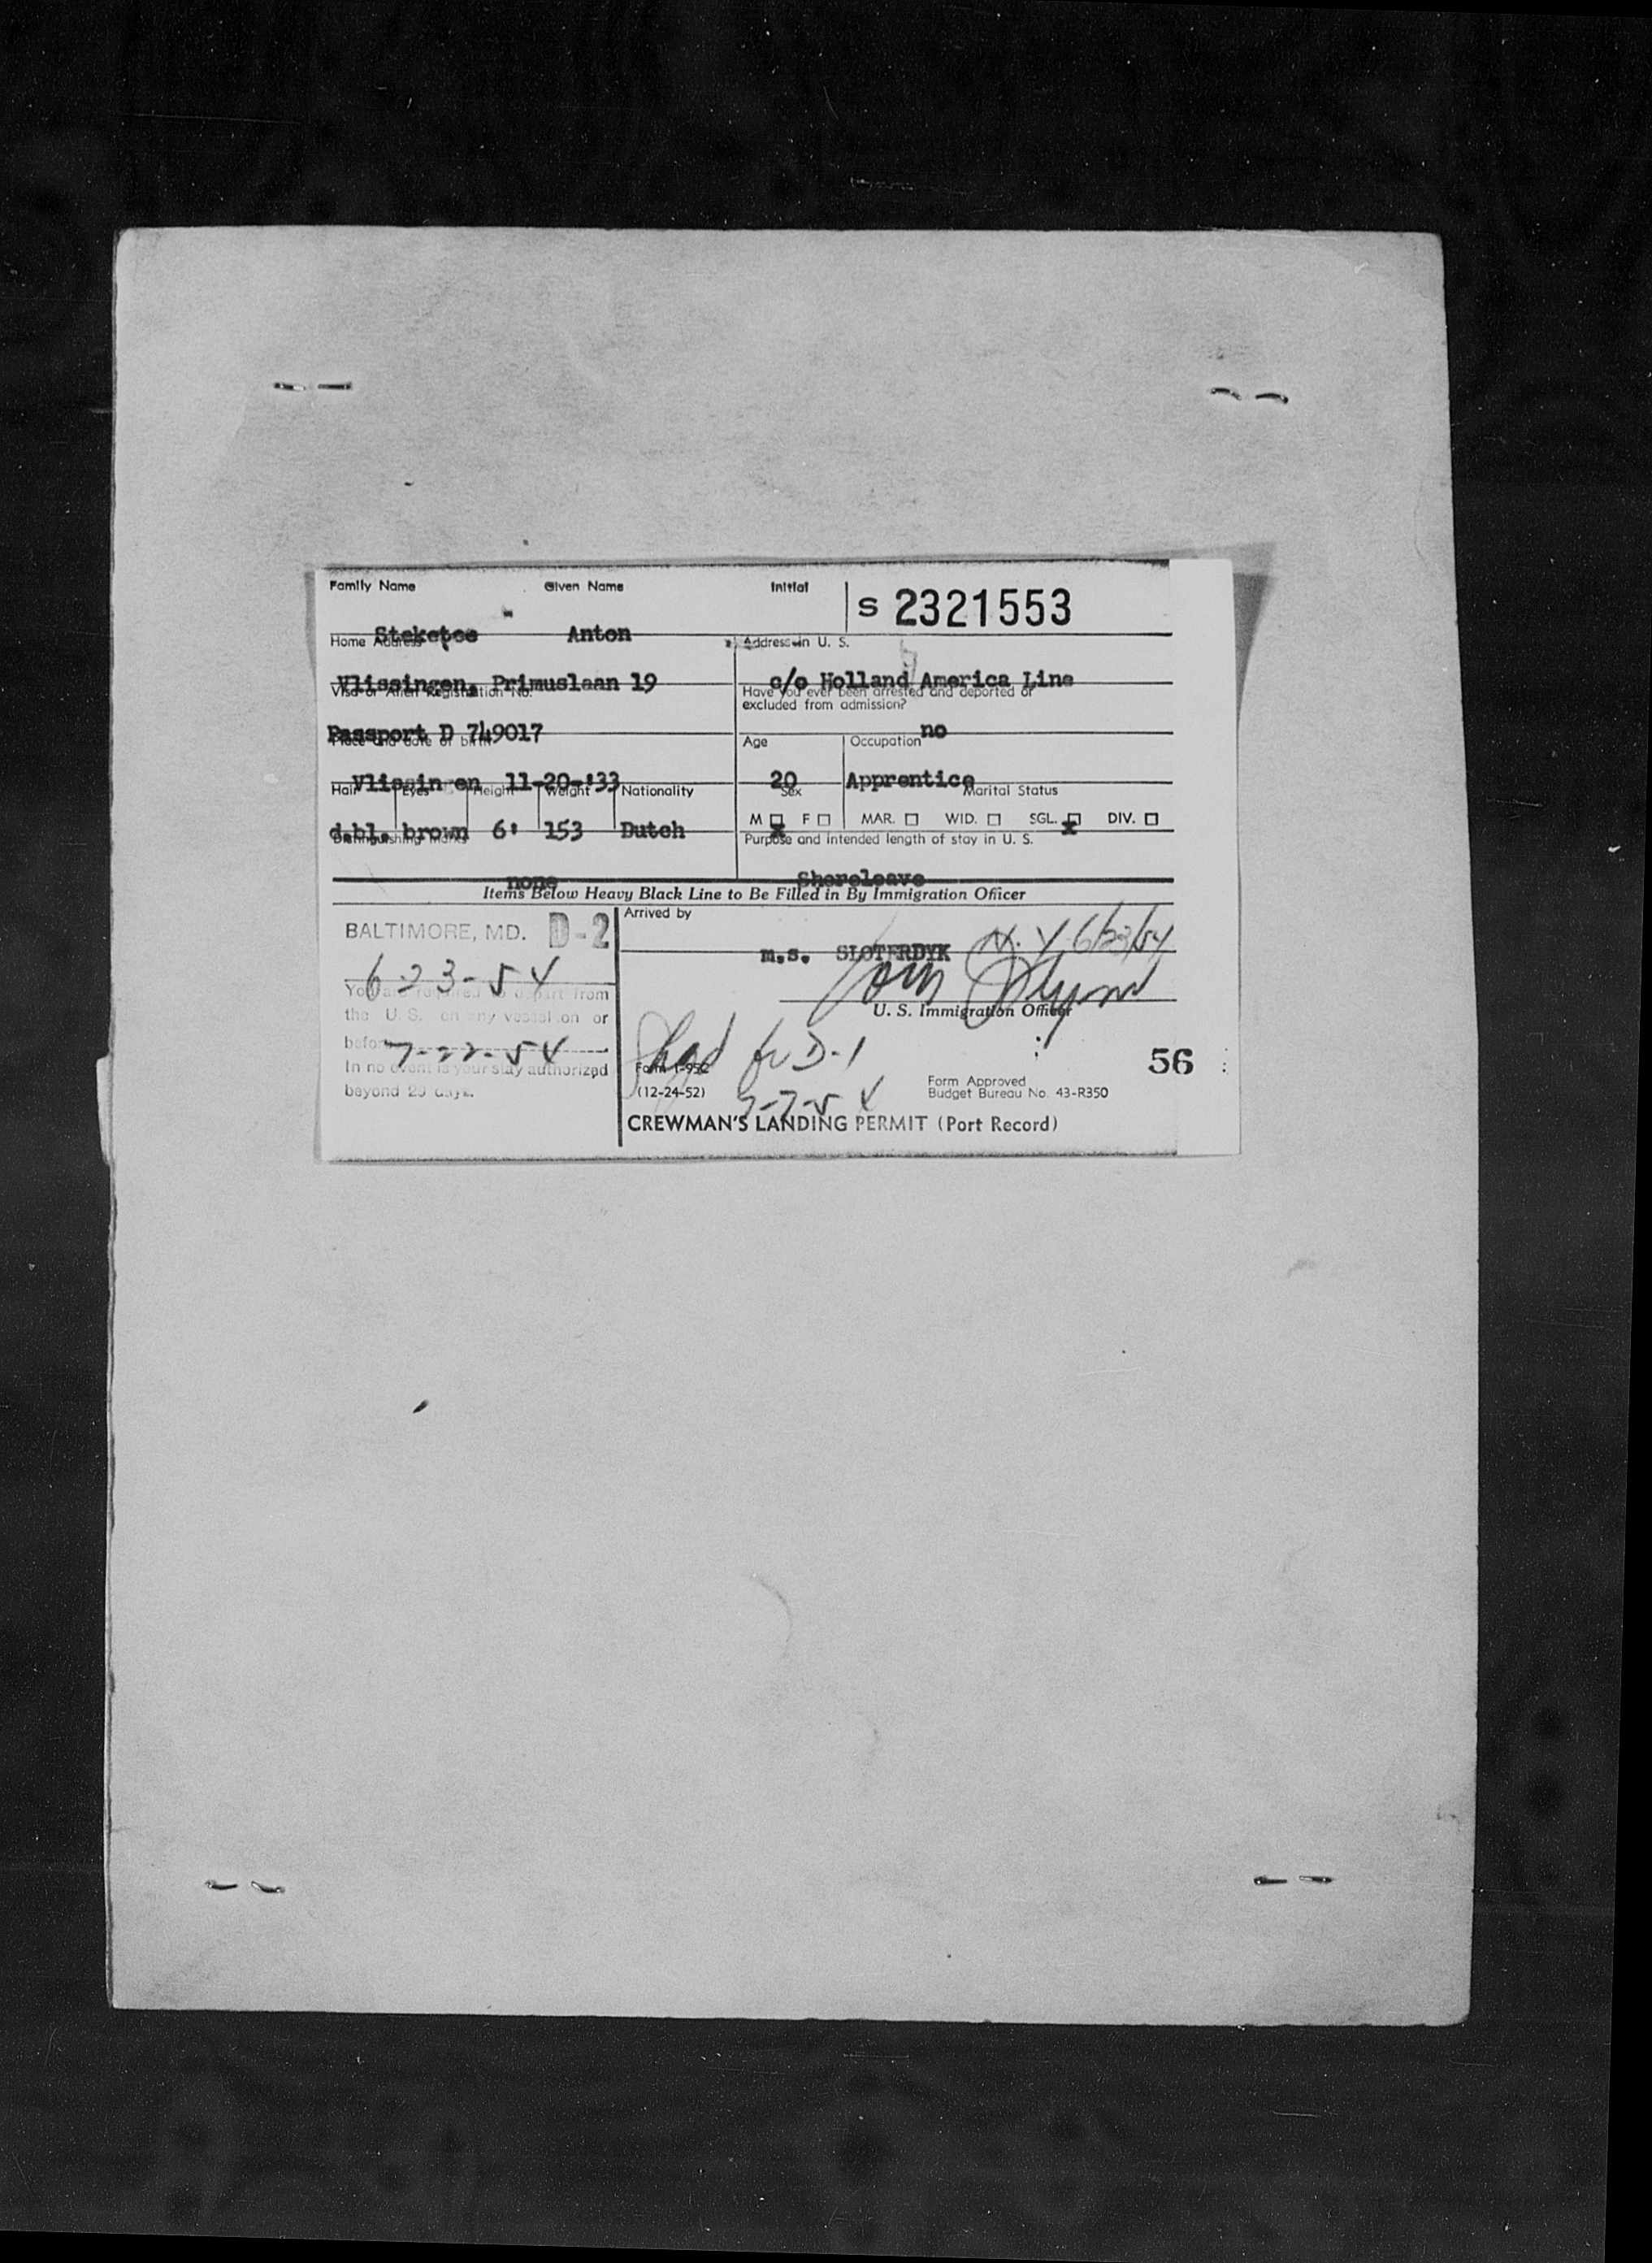 Family Name Given Name Initial
S 2321553
Steketee Anton
Home Address Address in U. S.
Vlissingen, Primuslaan 19 c/o Holland America Line
Visa or Alien Registration No. Have you ever been arrested and deported or
excluded from admission?
Passport D 749017 no
Place and date of birth Age Occupation
Vlissingen 11-20-'33 20 Apprentice
Hair Eyes Height Weight Nationality Sex Marital Status
M F MAR. WID. SGL. DIV.
d.bl. brown 6' 153 Dutch x x
Distinguishing Marks Purpose and intended length of stay in U. S.
none Shoreleave
Items Below Heavy Black Line to Be Filled in By Immigration Officer
BALTIMORE, MD. D-2
6-23-54
You are required to depart from
the U. S. on any vessel on or
before 7-22-54
In no event is your stay authorized
beyond 29 days.
Arrived by
m.s. SLOTERDYK N.Y. 6/23/54
U. S. Immigration Officer
for D-1
56
Form I-95C
(12-24-52)
7-7-54
Form Approved
Budget Bureau No. 43-R350
CREWMAN'S LANDING PERMIT (Port Record)